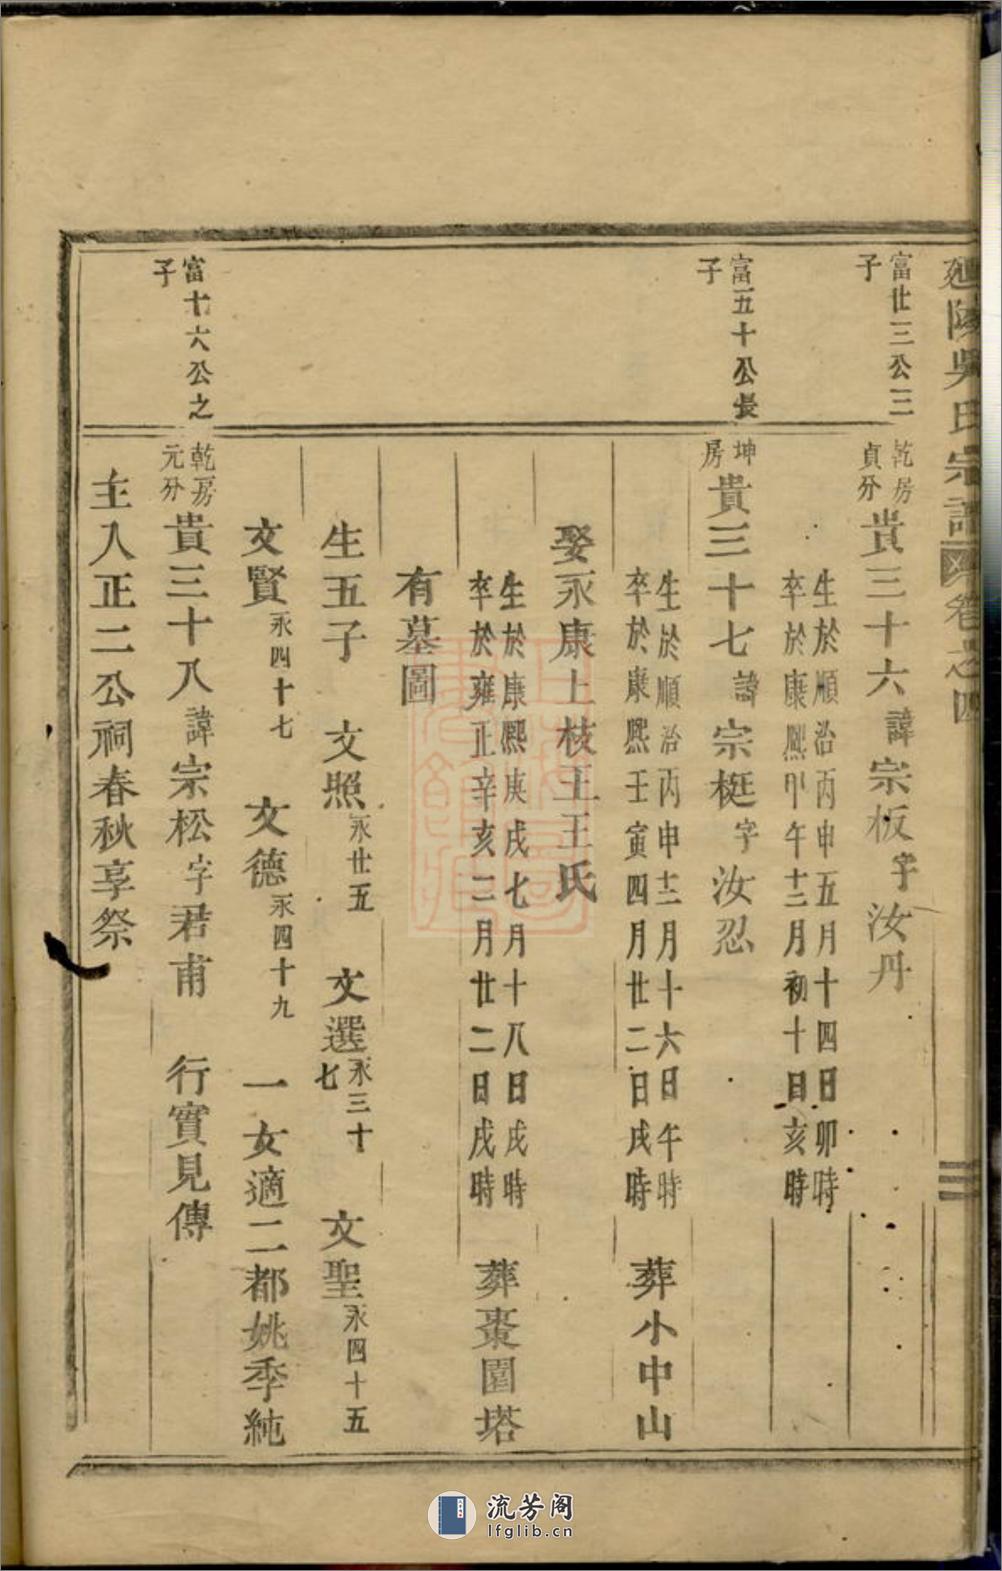 延陵吳氏宗譜 卷之四
富廿三公三子
乾房貞分 貴三十六 諱宗板 字汝丹
生於順治丙申五月十四日卯時
卒於康熙甲午十二月初十日亥時
富五十公長子
坤房 貴三十七 諱宗梃 字汝忍
生於順治丙申十二月十六日午時
卒於康熙壬寅四月廿二日戌時 葬小中山
娶永康上枝王王氏
生於康熙庚戌七月十八日戌時
卒於雍正辛亥二月廿二日戌時 葬棗園塔
有墓圖
生五子 文照永廿五 文選永三十七 文聖永四十五
文賢永四十七 文德永四十九 一女適二都姚季純
富十六公之子
乾房元分 貴三十八 諱宗松 字君甫 行實見傳
主入正二公祠春秋享祭
流芳阁
lfglib.cn